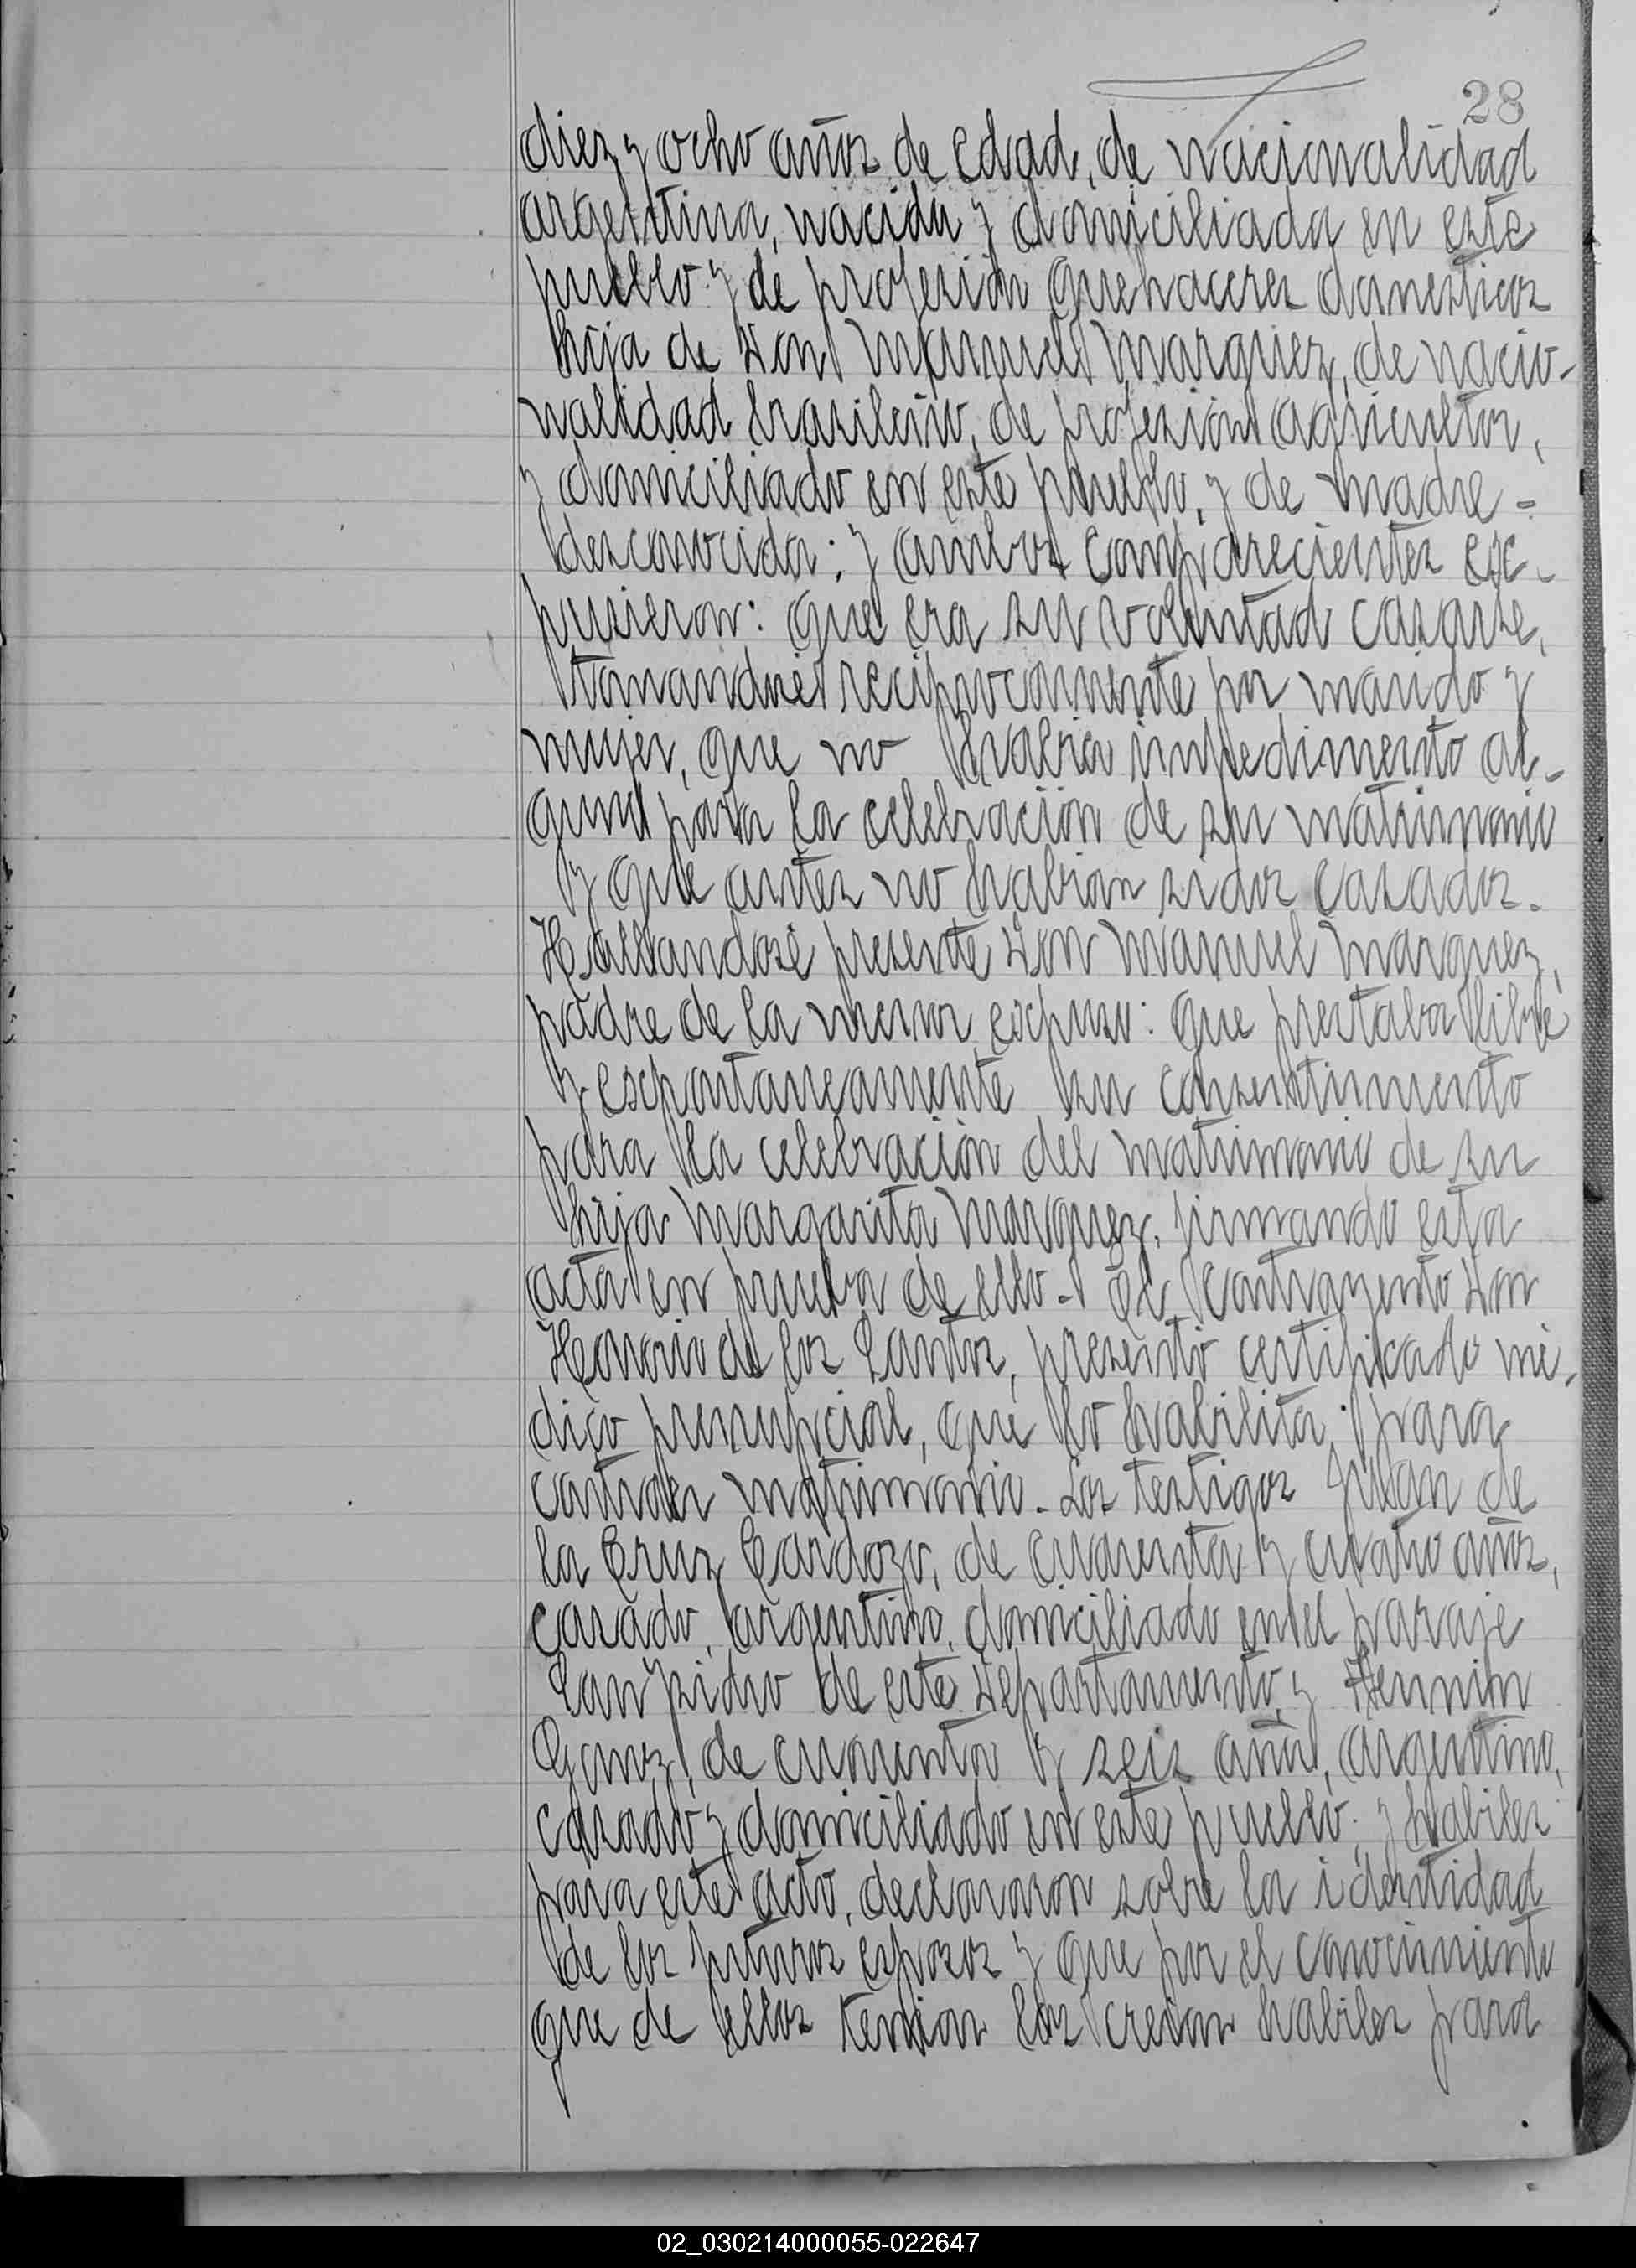 28
diez y ocho años de edad, de nacionalidad
argentina, nacida y domiciliada en este
pueblo y de profesión quehaceres domesticos
hija de Don Manuel Marquez, de nacio-
nalidad brasilero, de profesión agricultor,
y domiciliado en este pueblo, y de madre -
desconocida; y ambos comparecientes ex-
pusieron: que era su voluntad casarse,
tomandose reciprocamente por marido y
mujer, que no habia impedimento al-
guno para la celebración de su matrimonio
y que antes no habian sidos casados.
Hallandose presente Don Manuel Marquez,
padre de la menor expuso: que prestaba libre
y espontaneamente su consentimiento
para la celebración del matrimonio de su
hija Margarita Marquez, firmando esta
acta en prueba de ello - El contrayente Don
Honorio de los Santos, presentó certificado mé-
dico prenupcial, que lo habilita para
contraer matrimonio. Los testigos Juan de
la Cruz Cardozo, de cuarenta y cuatro años,
casado, argentino, domiciliado en el paraje
San Isidro de este Departamento, y
Gomez, de cuarenta y seis años, argentino,
casado y domiciliado en este pueblo; y habiles
para este acto, declararon sobre la identidad
de los futuros esposos y que por el conocimiento
que de ellos tenian los creian habiles para
02_030214000055-022647